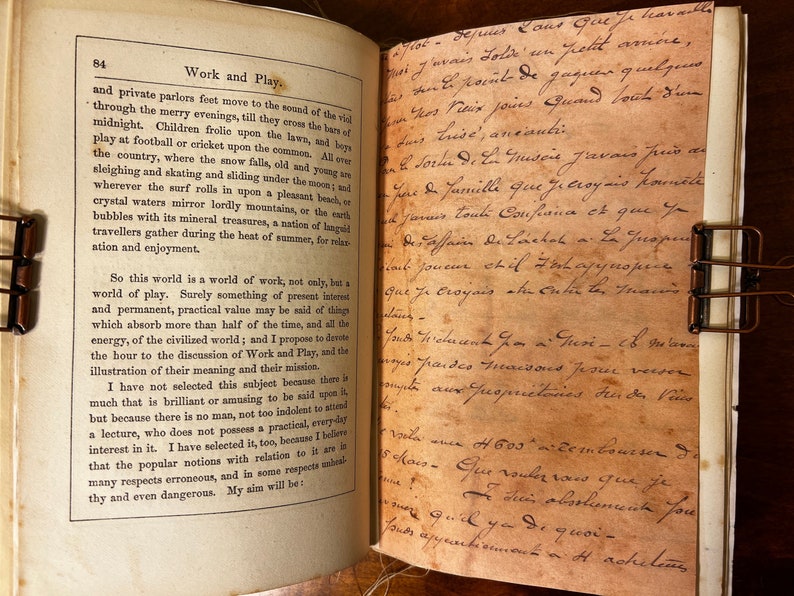 84
Work and Play.
and private parlors feet move to the sound of the viol
through the merry evenings, till they cross the bars of
midnight. Children frolic upon the lawn, and boys
play at football or cricket upon the common. All over
the country, where the snow falls, old and young are
sleighing and skating and sliding under the moon; and
wherever the surf rolls in upon a pleasant beach, or
crystal waters mirror lordly mountains, or the earth
bubbles with its mineral treasures, a nation of languid
travellers gather during the heat of summer, for relax-
ation and enjoyment.
So this world is a world of work, not only, but a
world of play. Surely something of present interest
and permanent, practical value may be said of things
which absorb more than half of the time, and all the
energy, of the civilized world; and I propose to devote
the hour to the discussion of Work and Play, and the
illustration of their meaning and their mission.
I have not selected this subject because there is
much that is brilliant or amusing to be said upon it,
but because there is no man, not too indolent to attend
a lecture, who does not possess a practical, every-day
interest in it. I have selected it, too, because I believe
that the popular notions with relation to it are in
many respects erroneous, and in some respects unheal-
thy and even dangerous. My aim will be:
depuis 2 ans que je travaille
j'avais soldé un petit arriéré,
sur le point de gagner quelques
nos vieux jours quand tout d'un
suis brisé, anéanti.
la sortie de la misère j'avais pris
père de famille que je croyais honnête
jamais toute confiance et que je
des affaires de l'achat à la propri
joueur et il s'est approprié
que je croyais être entre les mains
n'étaient pas à moi - il m'avai
par des maisons pour verser
aux propriétaires sur des vins
voilà avec 4600 à rembourser
Mars - Que voulez vous que je
Je suis absolument
qu'il y a de quoi -
appartiennent à